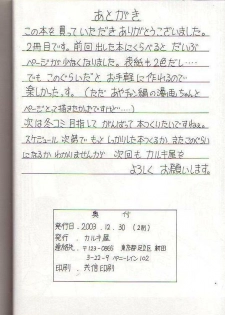 あとがき
この本を買っていただきありがとうございました。
2冊目です。前回出した本にくらべると だいぶ
ページが少なくなりました。表紙も2色だし…
でも このぐらいだと お手軽に作れるので
楽しかったす。(ただ あやチン編の漫画ちゃんと
ページとって描きたかたですけど……)
次は冬コミ目指して がんばって本つくりたいですねぇ。
スケジュール次第で もと しっかりした本つくるか またこのぐらい
になるか わかりませんが 次回も カルキ屋を
よろしく お願いします。
奥 付
発行日. 2003. 12. 30 (2刷)
発行. カルキ屋
連絡先. 〒123-0865 東京都足立区新田
3-22-9 ペニーレイン102
印刷. 共信印刷